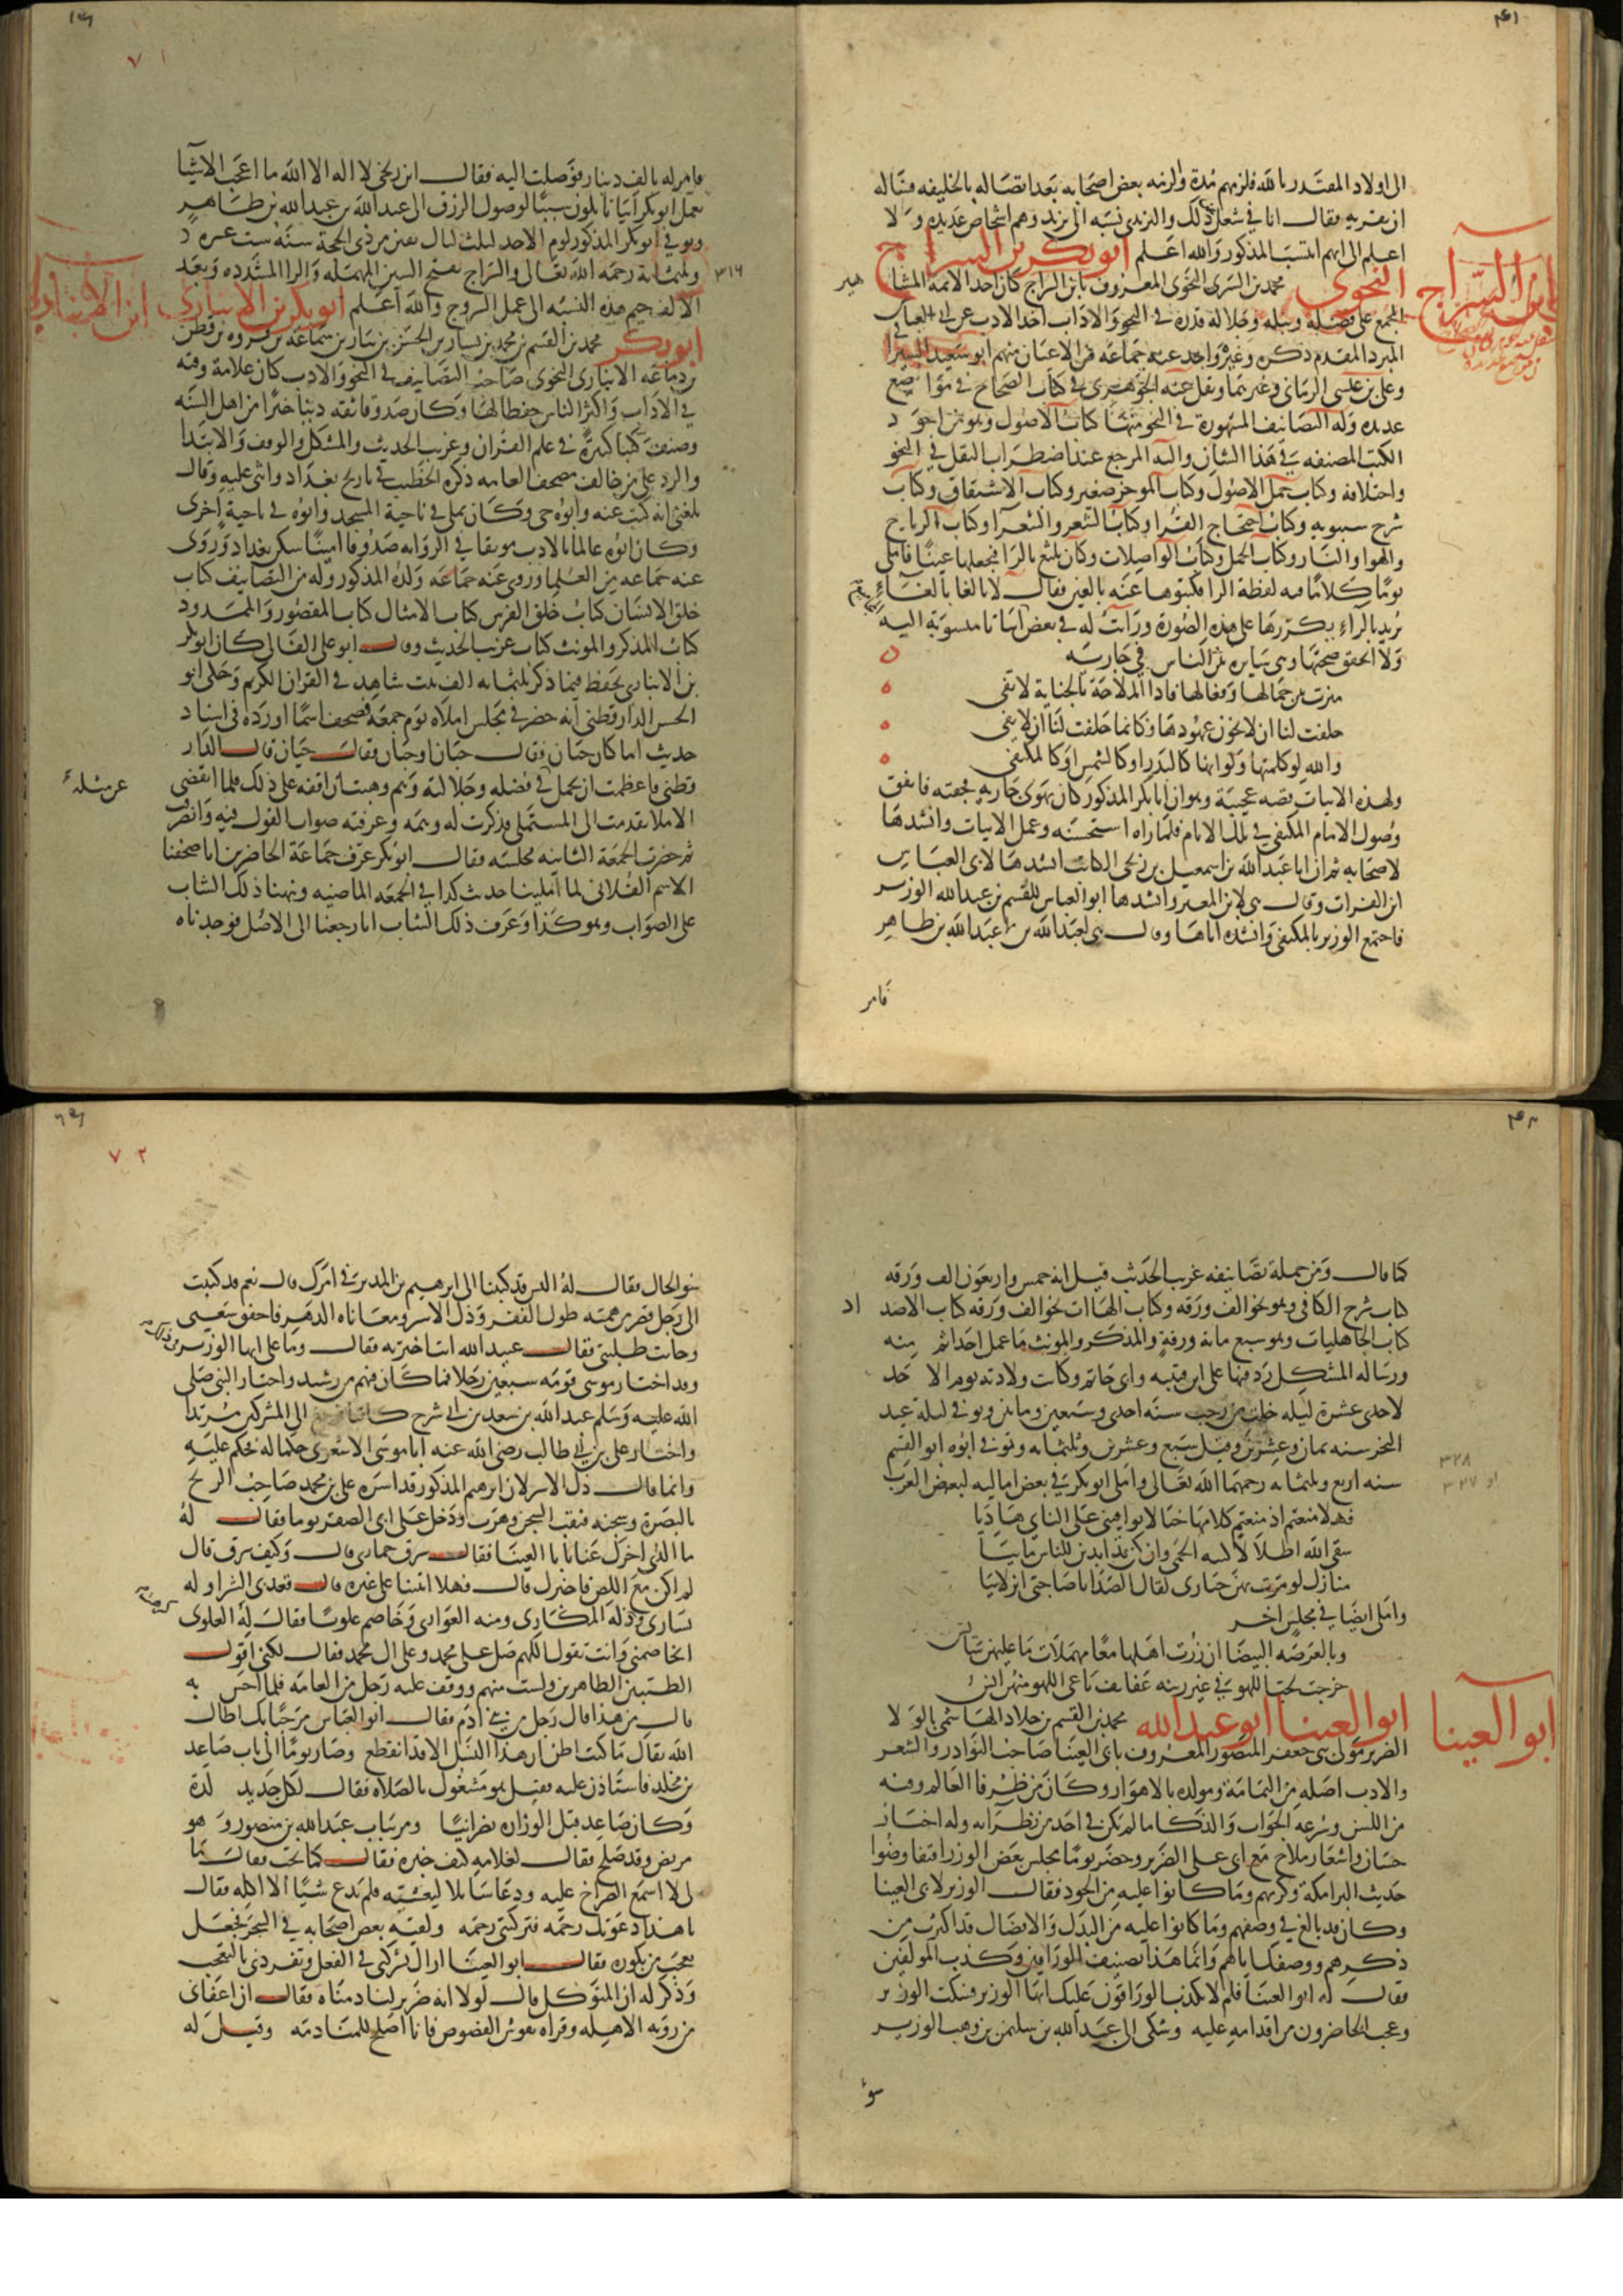 الى اولاد المقتدر بالله فلزمهم مدة ولزمه بعض اصحابه بعد اتصاله بالخليفه فساله
ان يقريه فقال انا في شغل عن ذلك واليزيدي نسبه الى يزيد وهم اشخاص عديده ولا
اعلم الى ايهم انتسب المذكور والله اعلم ابو بكر بن السراج
النحوي محمد بن السري النحوي المعروف بابن السراج كان احد الائمة المشا
هير
ابن السراج
المجمع على فضله ونبله وجلالة قدره في النحو والاداب اخذ الادب عن ابي العباس
المبرد المقدم ذكره وغيره واخذ عنه جماعه من الاعيان منهم ابو سعيد السيرافي
وعلي بن عيسى الرماني وغيرهما ونقل عنه الجوهري في كتاب الصحاح في مواضع
عديده وله التصانيف المشهورة في النحو منها كتاب الاصول وهو من اجود
الكتب المصنفه في هذا الشان واليه المرجع عند اضطراب النقل في النحو
واختلافه وكتاب جمل الاصول وكتاب الموجز صغير وكتاب الاشتقاق وكتاب
شرح سيبويه وكتاب احتجاج القرا وكتاب الشعر والشعرا وكتاب الرياح
والهوا والنار وكتاب الجمل وكتاب المواصلات وكان يلثغ بالرا فيجعلها غينا فاملى
يوما كلاما فيه لفظة الرا فكتبوها عنه بالغين فقال لا بالغا بالغاء
يريد بالراء يكررها على هذه الصورة ورايت له في بعض ابياتا منسوبة اليه
ولا اتحقق صحتها وهي سايره بين الناس في جاريته
ميزت بين جمالها وفعالها فاذا الملاحة بالخيانة لا تفي
حلفت لنا ان لا تخون عهودها فكانما حلفت لنا ان لا تفي
والله لا كلمتها ولو انها كالبدر او كالشمس او كالمكتفي
ولهذه الابيات قصه عجيبة وهو ان ابا بكر المذكور كان يهوى جاريه فجفته فاتفق
وصول الامام المكتفي في تلك الايام فلما راه استحسنه وعمل الابيات وانشدها
لاصحابه ثم ان ابا عبد الله بن اسمعيل بن زنجي الكاتب انشدها لابي العباس
ابن الفرات وقال هي لابن المعتز وانشدها ابو العباس للقسم بن عبيد الله الوزير
فاجتمع الوزير بالمكتفي وانشده اياها وقال هي لعبيد الله بن عبد الله بن طاهر
فامر
فامر له بالف دينار فوصلت اليه فقال ابن زنجي لا اله الا الله ما اعجب الاشيا
يعمل ابو بكر ابياتا تكون سببا لوصول الرزق الى عبيد الله بن عبد الله بن طاهر
وتوفي ابو بكر المذكور يوم الاحد لثلث ليال بقين من ذي الحجة سنة ست عشره
٣١٦
وثلثمائة رحمه الله تعالى والسراج بفتح السين المهمله والرا المشدده وبعد
الالف جيم هذه النسبه الى عمل السروج والله اعلم ابو بكر بن الانباري
ابن الانباري
ابو بكر محمد بن القسم بن محمد بن بشار بن الحسن بن بيان بن سماعة بن فروه بن قطن
بن دعامه الانباري النحوي صاحب التصانيف في النحو والادب كان علامة وقته
في الاداب واكثر الناس حفظا لها وكان صدوقا ثقه دينا خيرا من اهل السنه
وصنف كتبا كثيرة في علم القران وغريب الحديث والمشكل والوقف والابتدا
والرد على من خالف مصحف العامه ذكره الخطيب في تاريخ بغداد واثنى عليه وقال
بلغني انه كتب عنه وابوه حي وكان يملي في ناحية المسجد وابوه في ناحية اخرى
وكان ابوه عالما بالادب موثقا في الروايه صدوقا امينا سكن بغداد وروى
عنه جماعه من العلما وروى عنه جماعه ولده المذكور وله من التصانيف كتاب
خلق الانسان كتاب خلق الفرس كتاب الامثال كتاب المقصور والممدود
كتاب المذكر والمونث كتاب غريب الحديث وقال ابو علي القالي كان ابو بكر
بن الانباري يحفظ فيما ذكر ثلثمايه الف بيت شاهد في القران الكريم وحكى ابو
الحسن الدارقطني انه حضر في مجلس املاه يوم جمعه فصحف اسما اورده في اسناد
حديث اما كان حبان فقال حيان او حيان فقال حبان قال الدار
قطني فاعظمت ان يحمل في فضله وجلالته وهم وهبت ان اقفه على ذلك فلما انقضى
عن مثله
الاملا تقدمت الى المستملي فذكرت له وهمه وعرفته صواب القول فيه وانصرفت
ثم حضرت الجمعة الثانيه مجلسه فقال ابو بكر عرف جماعة الحاضرين انا صحفنا
الاسم الفلاني لما املينا حديث كذا في الجمعه الماضيه ونبهنا ذلك الشاب
على الصواب وهو كذا وعرف ذلك الشاب انا رجعنا الى الاصل فوجدناه
٧١
كما قال ومن جملة تصانيفه غريب الحديث قيل انه خمس واربعون الف ورقه
كتاب شرح الكافي وهو نحو الف ورقه وكتاب الهاات نحو الف ورقه كتاب الاضد
اد
كتاب الجاهليات وهو سبع مائة ورقة والمذكر والمونث ما عمل احد اتم منه
ورساله المشكل رد فيها على ابن قتيبه وابي حاتم وكانت ولادته يوم الاحد
لاحدى عشرة ليله خلت من رجب سنه احدى وسبعين ومايتين وتوفي ليلة عيد
النحر سنه ثمان وعشرين وقيل سبع وعشرين وثلثمايه وتوفي ابوه ابو القسم
٣٢٨
او ٣٢٧
سنه اربع وثلثمايه رحمهما الله تعالى واملى ابو بكر في بعض اماليه لبعض العرب
فهلا منعتم اذ منعتم كلامها خيالا يوافيني على الناي هاديا
سقى الله اطلالا باكثبة الحمى وان كن قد ابدين للناس مابيا
منازل لو مرت بهن جنازتي لقال الصدا يا صاحبي انزلانيا
واملى ايضا في مجلس اخر
وبالعرصه البيضا ان زرت اهلها مها مهملات ما عليهن سايس
خرجن لحب اللهو في غير ريبه عفايف باغي اللهو منهن ايس
ابو العينا ابو عبد الله محمد بن القسم بن خلاد الهاشمي بالولا
ابو العينا
الضرير مولى ابي جعفر المنصور المعروف بابي العينا صاحب النوادر والشعر
والادب اصله من اليمامة ومولده بالاهواز وكان من ظرفا العالم وفيه
من اللسن وسرعه الجواب والذكا ما لم يكن في احد من نظرايه وله اخبار
حسان واشعار ملاح مع ابي علي الضرير وحضر يوما مجلس بعض الوزرا فتفاوضوا
حديث البرامكة وكرمهم وما كانوا عليه من الجود فقال الوزير لابي العينا
وكان قد بالغ في وصفهم وما كانوا عليه من البذل والافضال قد اكثرت من
ذكرهم ووصفك اياهم وانما هذا تصنيف الوراقين وكذب المولفين
فقال له ابو العينا فلم لا يكذب الوراقون عليك ايها الوزير فسكت الوزير
وعجب الحاضرون من اقدامه عليه وشكى الى عبيد الله بن سليمن بن وهب الوزير
سوء
٧٢
سوء الحال فقال له اليس قد كتبنا الى ابرهيم بن المدبر في امرك قال نعم قد كتبت
الى رجل قصر من همته طول الفقر وذل الاسر ومعاناه الدهر فاخفق سعيي
وخابت طلبتي فقال عبيد الله انت اخترته فقال وما علي ايها الوزير في ذلك
وقد اختار موسى قومه سبعين رجلا فما كان فيهم رشيد واختار النبي صلى
الله عليه وسلم عبد الله بن سعد بن ابي سرح كاتبا فرجع الى المشركين مرتدا
واختار علي بن ابي طالب رضي الله عنه ابا موسى الاشعري حكما له فحكم عليه
وانما قال ذل الاسر لان ابرهيم المذكور قد اسره علي بن محمد صاحب الزنج
بالبصرة وسجنه فنقب السجن وهرب ودخل على ابي الصقر يوما فقال له
ما الذي اخرك عنا يا ابا العينا فقال سرق حماري قال وكيف سرق قال
لم اكن مع اللص فاخبرك قال فهلا اتيتنا على غيره قال قعد بي عن الشرا قله
يساري وذلة المكاري ومنه العواري وخاصم علويا فقال له العلوي
اتخاصمني وانت تقول اللهم صل على محمد وعلى ال محمد فقال لكني اقول
الطيبين الطاهرين ولست منهم ووقف عليه رجل من العامه فلما احس به
قال من هذا قال رجل من بني ادم فقال ابو العباس مرحبا بك اطال
الله بقاك ما كنت اظن ان هذا النسل الا قد انقطع وصار يوما الى باب صاعد
بن مخلد فاستاذن عليه فقيل هو مشغول بالصلاه فقال لكل جديد لذة
وكان صاعد قبل الوزاره نصرانيا ومر بباب عبد الله بن منصور وهو
مريض وقد صلح فقال لغلامه كيف خبره فقال كما تحب فقال ما
لي لا اسمع الصراخ عليه ودعا سايلا ليعشيه فلم يدع شيا الا اكله فقال
يا هذا دعوتك رحمه فتركتني رحمه ولقيه بعض اصحابه في السحر فجعل
يعجب من بكوره فقال ابو العينا اراك تشركني في الفعل وتفردني بالتعجب
وذكر له ان المتوكل قال لولا انه ضرير لنادمناه فقال ان اعفاني
من رويه الاهله وقراه نقوش الفصوص فانا اصلح للمنادمه وقيل له